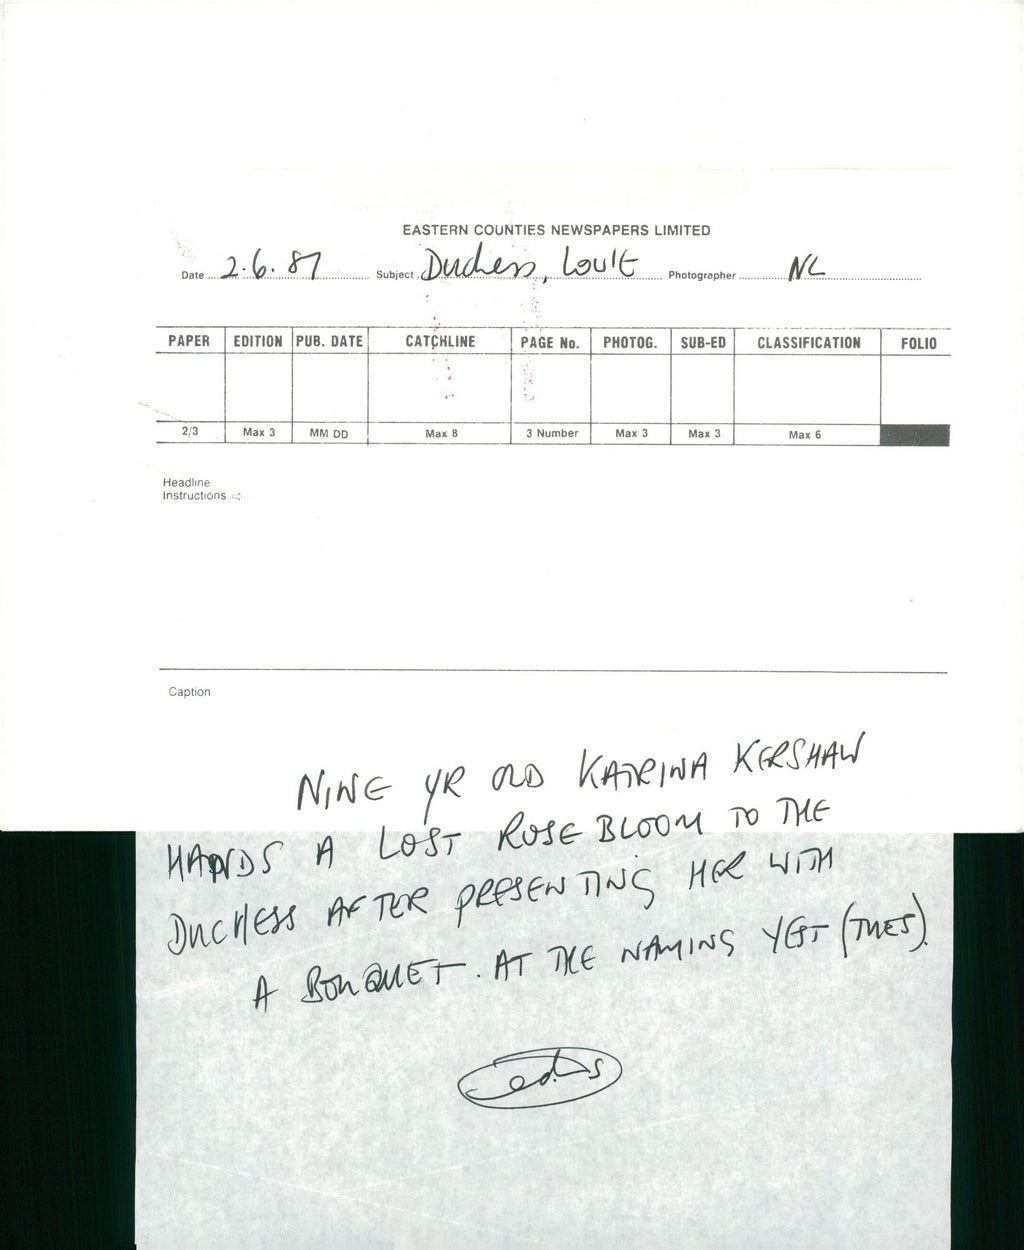 EASTERN COUNTIES NEWSPAPERS LIMITED
Date 2.6.87 Subject Duchess, Louie Photographer NL
PAPER EDITION PUB. DATE CATCHLINE PAGE No. PHOTOG. SUB-ED CLASSIFICATION FOLIO
2/3 Max 3 MM DD Max 8 3 Number Max 3 Max 3 Max 6
Headline
Instructions ⇨
Caption
NINE YR OLD KATRINA KERSHAW
HANDS A LOST ROSE BLOOM TO THE
DUCHESS AFTER PRESENTING HER WITH
A BOUQUET. AT THE NAMING YEST (TUES).